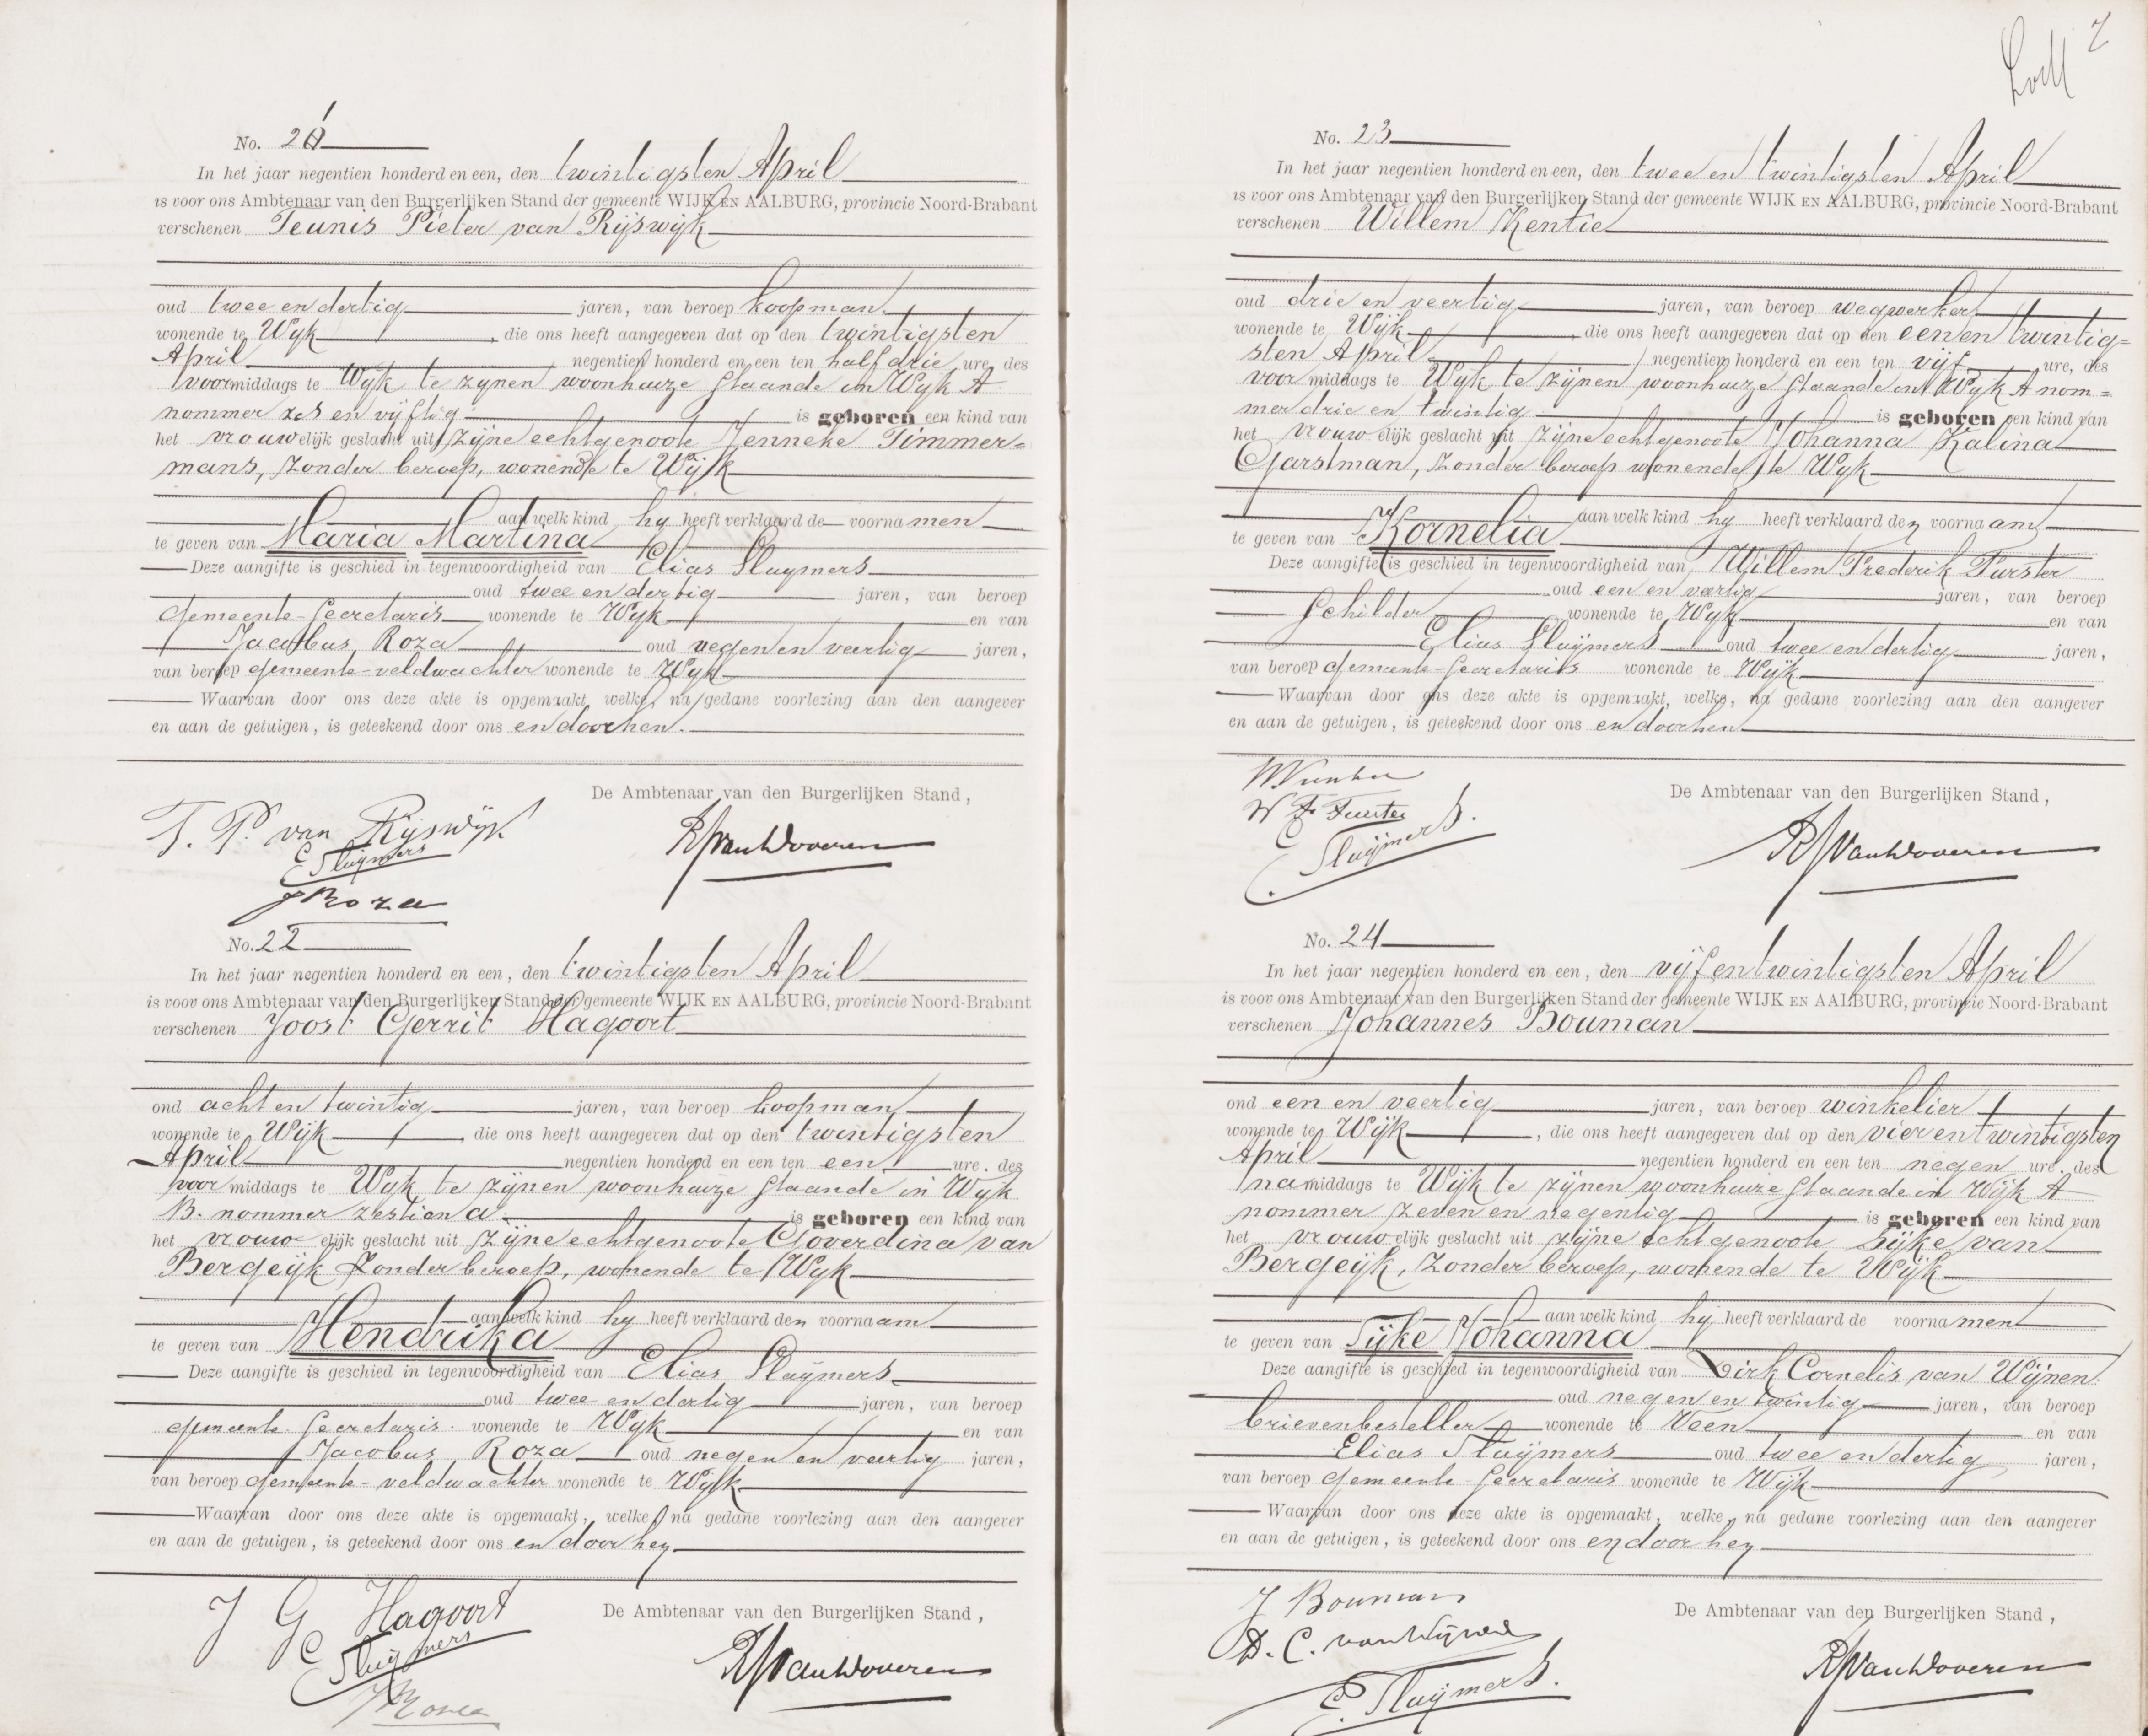 No. 21
In het jaar negentien honderd en een, den twintigsten April
is voor ons Ambtenaar van den Burgerlijken Stand der gemeente WIJK EN AALBURG, provincie Noord-Brabant
verschenen Teunis Pieter van Rijswijk
oud twee en dertig jaren, van beroep koopman
wonende te Wijk, die ons heeft aangegeven dat op den twintigsten
April negentien honderd en een ten half drie ure, des
voormiddags te Wijk te zijnen woonhuize staande in Wijk A
nommer zes en vijftig is geboren een kind van
het vrouwelijk geslacht uit zijne echtgenoote Jenneke Timmer=
mans, zonder beroep, wonende te Wijk
aan welk kind hij heeft verklaard de voornamen
te geven van Maria Martina
Deze aangifte is geschied in tegenwoordigheid van Elias Sluijmers
oud twee en dertig jaren, van beroep
gemeente-Secretaris wonende te Wijk en van
Jacobus Roza oud negen en veertig jaren,
van beroep gemeente-veldwachter wonende te Wijk
Waarvan door ons deze akte is opgemaakt, welke, na gedane voorlezing aan den aangever
en aan de getuigen, is geteekend door ons en door hen.
De Ambtenaar van den Burgerlijken Stand,
T. P. van Rijswijk
E Sluijmers
J Roza
No. 22
In het jaar negentien honderd en een, den twintigsten April
is voor ons Ambtenaar van den Burgerlijken Stand der gemeente WIJK EN AALBURG, provincie Noord-Brabant
verschenen Joost Gerrit Hagoort
oud acht en twintig jaren, van beroep koopman
wonende te Wijk, die ons heeft aangegeven dat op den twintigsten
April negentien honderd en een ten een ure, des
voormiddags te Wijk te zijnen woonhuize staande in Wijk
B. nommer zestien a is geboren een kind van
het vrouwelijk geslacht uit zijne echtgenoote Goverdina van
Bergeijk zonder beroep, wonende te Wijk
aan welk kind hij heeft verklaard den voornaam
te geven van Hendrika
Deze aangifte is geschied in tegenwoordigheid van Elias Sluijmers
oud twee en dertig jaren, van beroep
gemeente-Secretaris wonende te Wijk en van
Jacobus Roza oud negen en veertig jaren,
van beroep gemeente-veldwachter wonende te Wijk
Waarvan door ons deze akte is opgemaakt, welke, na gedane voorlezing aan den aangever
en aan de getuigen, is geteekend door ons en door hen
De Ambtenaar van den Burgerlijken Stand,
J G Hagoort
E Sluijmers
J Roza
7
No. 23
In het jaar negentien honderd en een, den twee en twintigsten April
is voor ons Ambtenaar van den Burgerlijken Stand der gemeente WIJK EN AALBURG, provincie Noord-Brabant
verschenen Willem Kentie
oud drie en veertig jaren, van beroep wegwerker
wonende te Wijk, die ons heeft aangegeven dat op den een en twintig=
sten April negentien honderd en een ten vijf ure, des
voormiddags te Wijk te zijnen woonhuize staande in Wijk A nom=
mer drie en twintig is geboren een kind van
het vrouwelijk geslacht uit zijne echtgenoote Johanna Kalina
Garstman, zonder beroep wonende te Wijk
aan welk kind hij heeft verklaard den voornaam
te geven van Kornelia
Deze aangifte is geschied in tegenwoordigheid van Willem Frederik Furster
oud een en veertig jaren, van beroep
Schilder wonende te Wijk en van
Elias Sluijmers oud twee en dertig jaren,
van beroep gemeente-Secretaris wonende te Wijk
Waarvan door ons deze akte is opgemaakt, welke, na gedane voorlezing aan den aangever
en aan de getuigen, is geteekend door ons en door hen
De Ambtenaar van den Burgerlijken Stand,
W F Furster
E Sluijmers.
No. 24
In het jaar negentien honderd en een, den vijf en twintigsten April
is voor ons Ambtenaar van den Burgerlijken Stand der gemeente WIJK EN AALBURG, provincie Noord-Brabant
verschenen Johannes Bouman
oud een en veertig jaren, van beroep winkelier
wonende te Wijk, die ons heeft aangegeven dat op den vier en twintigsten
April negentien honderd en een ten negen ure, des
namiddags te Wijk te zijnen woonhuize staande in Wijk A
nommer zeven en negentig is geboren een kind van
het vrouwelijk geslacht uit zijne echtgenoote Sijke van
Bergeijk, zonder beroep, wonende te Wijk
aan welk kind hij heeft verklaard de voornamen
te geven van Sijke Johanna
Deze aangifte is geschied in tegenwoordigheid van Dirk Cornelis van Wijnen
oud negen en twintig jaren, van beroep
brievenbesteller wonende te Veen en van
Elias Sluijmers oud twee en dertig jaren,
van beroep gemeente-Secretaris wonende te Wijk
Waarvan door ons deze akte is opgemaakt, welke, na gedane voorlezing aan den aangever
en aan de getuigen, is geteekend door ons en door hen
De Ambtenaar van den Burgerlijken Stand,
J Bouman
D. C. van Wijnen
E. Sluijmers.